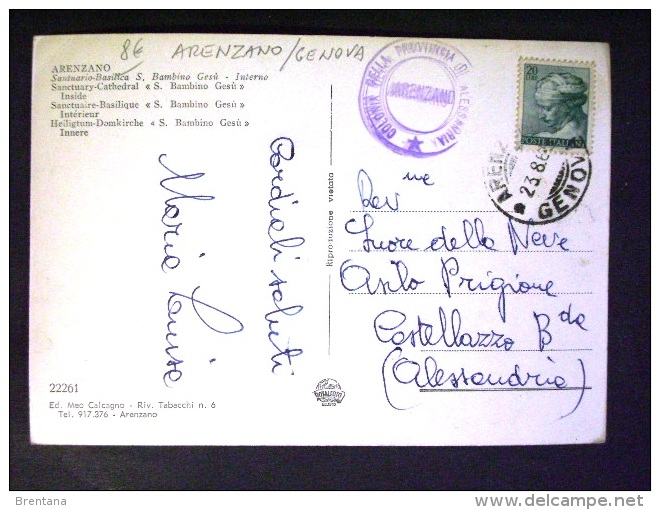 8€ ARENZANO/GENOVA
ARENZANO
Santuario-Basilica S. Bambino Gesù - Interno
Sanctuary-Cathedral « S. Bambino Gesù »
Inside
Sanctuaire-Basilique « S. Bambino Gesù »
Intérieur
Heiligtum-Domkirche « S. Bambino Gesù »
Innere
COLONIA DELLA PROVINCIA DI ALESSANDRIA
ARENZANO
20
POSTE ITALIANE
23.8.6
GENOV
Cordiali saluti
Maria Luisa
Riproduzione vietata
Rev me
Suore della Neve
Asilo Prigione
Castellazzo B da
(Alessandria)
22261
Ed. Meo Calcagno - Riv. Tabacchi n. 6
Tel. 917.376 - Arenzano
Brentana
delcampe.net